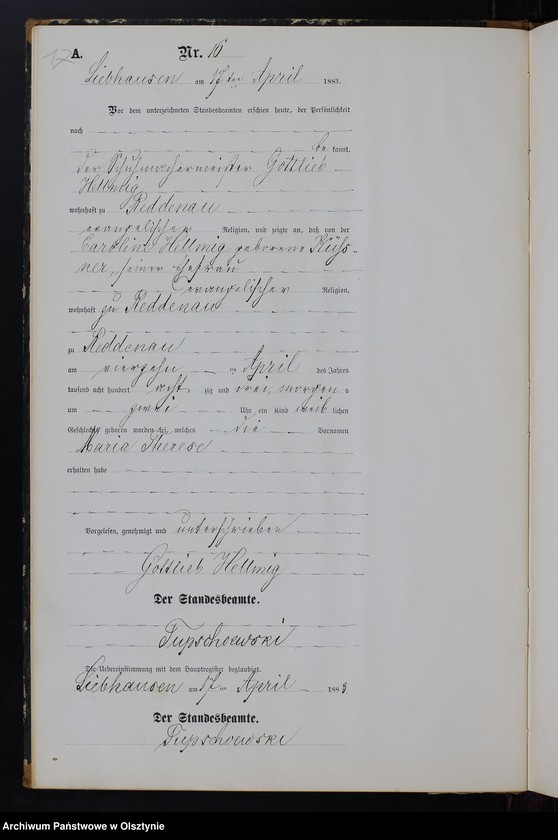 A. Nr. 16
Liebhausen am 17ten April 1883.
Vor dem unterzeichneten Standesbeamten erschien heute, der Persönlichkeit
nach
be kannt,
der Schuhmachermeister Gottlieb
Hellwig
wohnhaft zu Reddenau
evangelischer Religion, und zeigte an, daß von der
Caroline Hellwig geborene Küß-
ner, seiner Ehefrau
evangelischer Religion,
wohnhaft zu Reddenau
zu Reddenau
am vierzehn ten April des Jahres
tausend acht hundert acht zig und drei, morgens
um zwei Uhr ein Kind weib lichen
Geschlechts geboren worden sei, welches die Vornamen
Maria Therese
erhalten habe
Vorgelesen, genehmigt und unterschrieben
Gottlieb Hellwig
Der Standesbeamte.
Die Uebereinstimmung mit dem Hauptregister beglaubigt.
Liebhausen am 17ten April 1883
Der Standesbeamte.
Archiwum Państwowe w Olsztynie